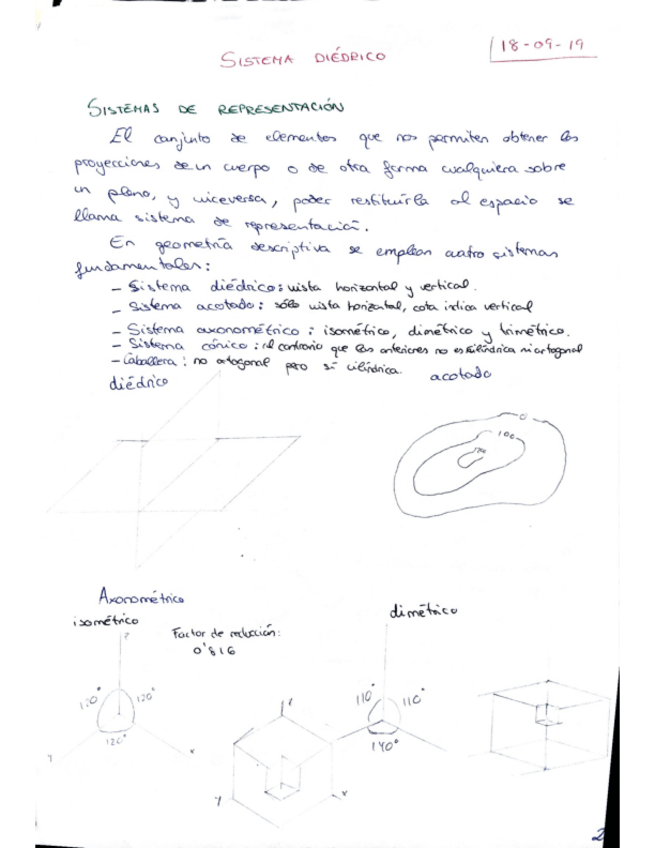 SISTEMA DIÉDRICO
18-09-19
SISTEMAS DE REPRESENTACIÓN
El conjunto de elementos que nos permiten obtener las
proyecciones de un cuerpo o de otra forma cualquiera sobre
un plano, y viceversa, poder restituirla al espacio se
llama sistema de representación.
En geometría descriptiva se emplean cuatro sistemas
fundamentales:
- Sistema diédrico: vista horizontal y vertical.
- Sistema acotado: sólo vista horizontal, cota indica vertical
- Sistema axonométrico: isométrico, dimétrico y trimétrico.
- Sistema cónico: al contrario que los anteriores no es cilíndrica ni ortogonal
- Caballera: no ortogonal pero sí cilíndrica.
diédrico
acotado
0
100
Axonométrico
isométrico
dimétrico
Factor de reducción:
0'816
z
120°
120°
120°
x
y
x
110°
110°
140°
2